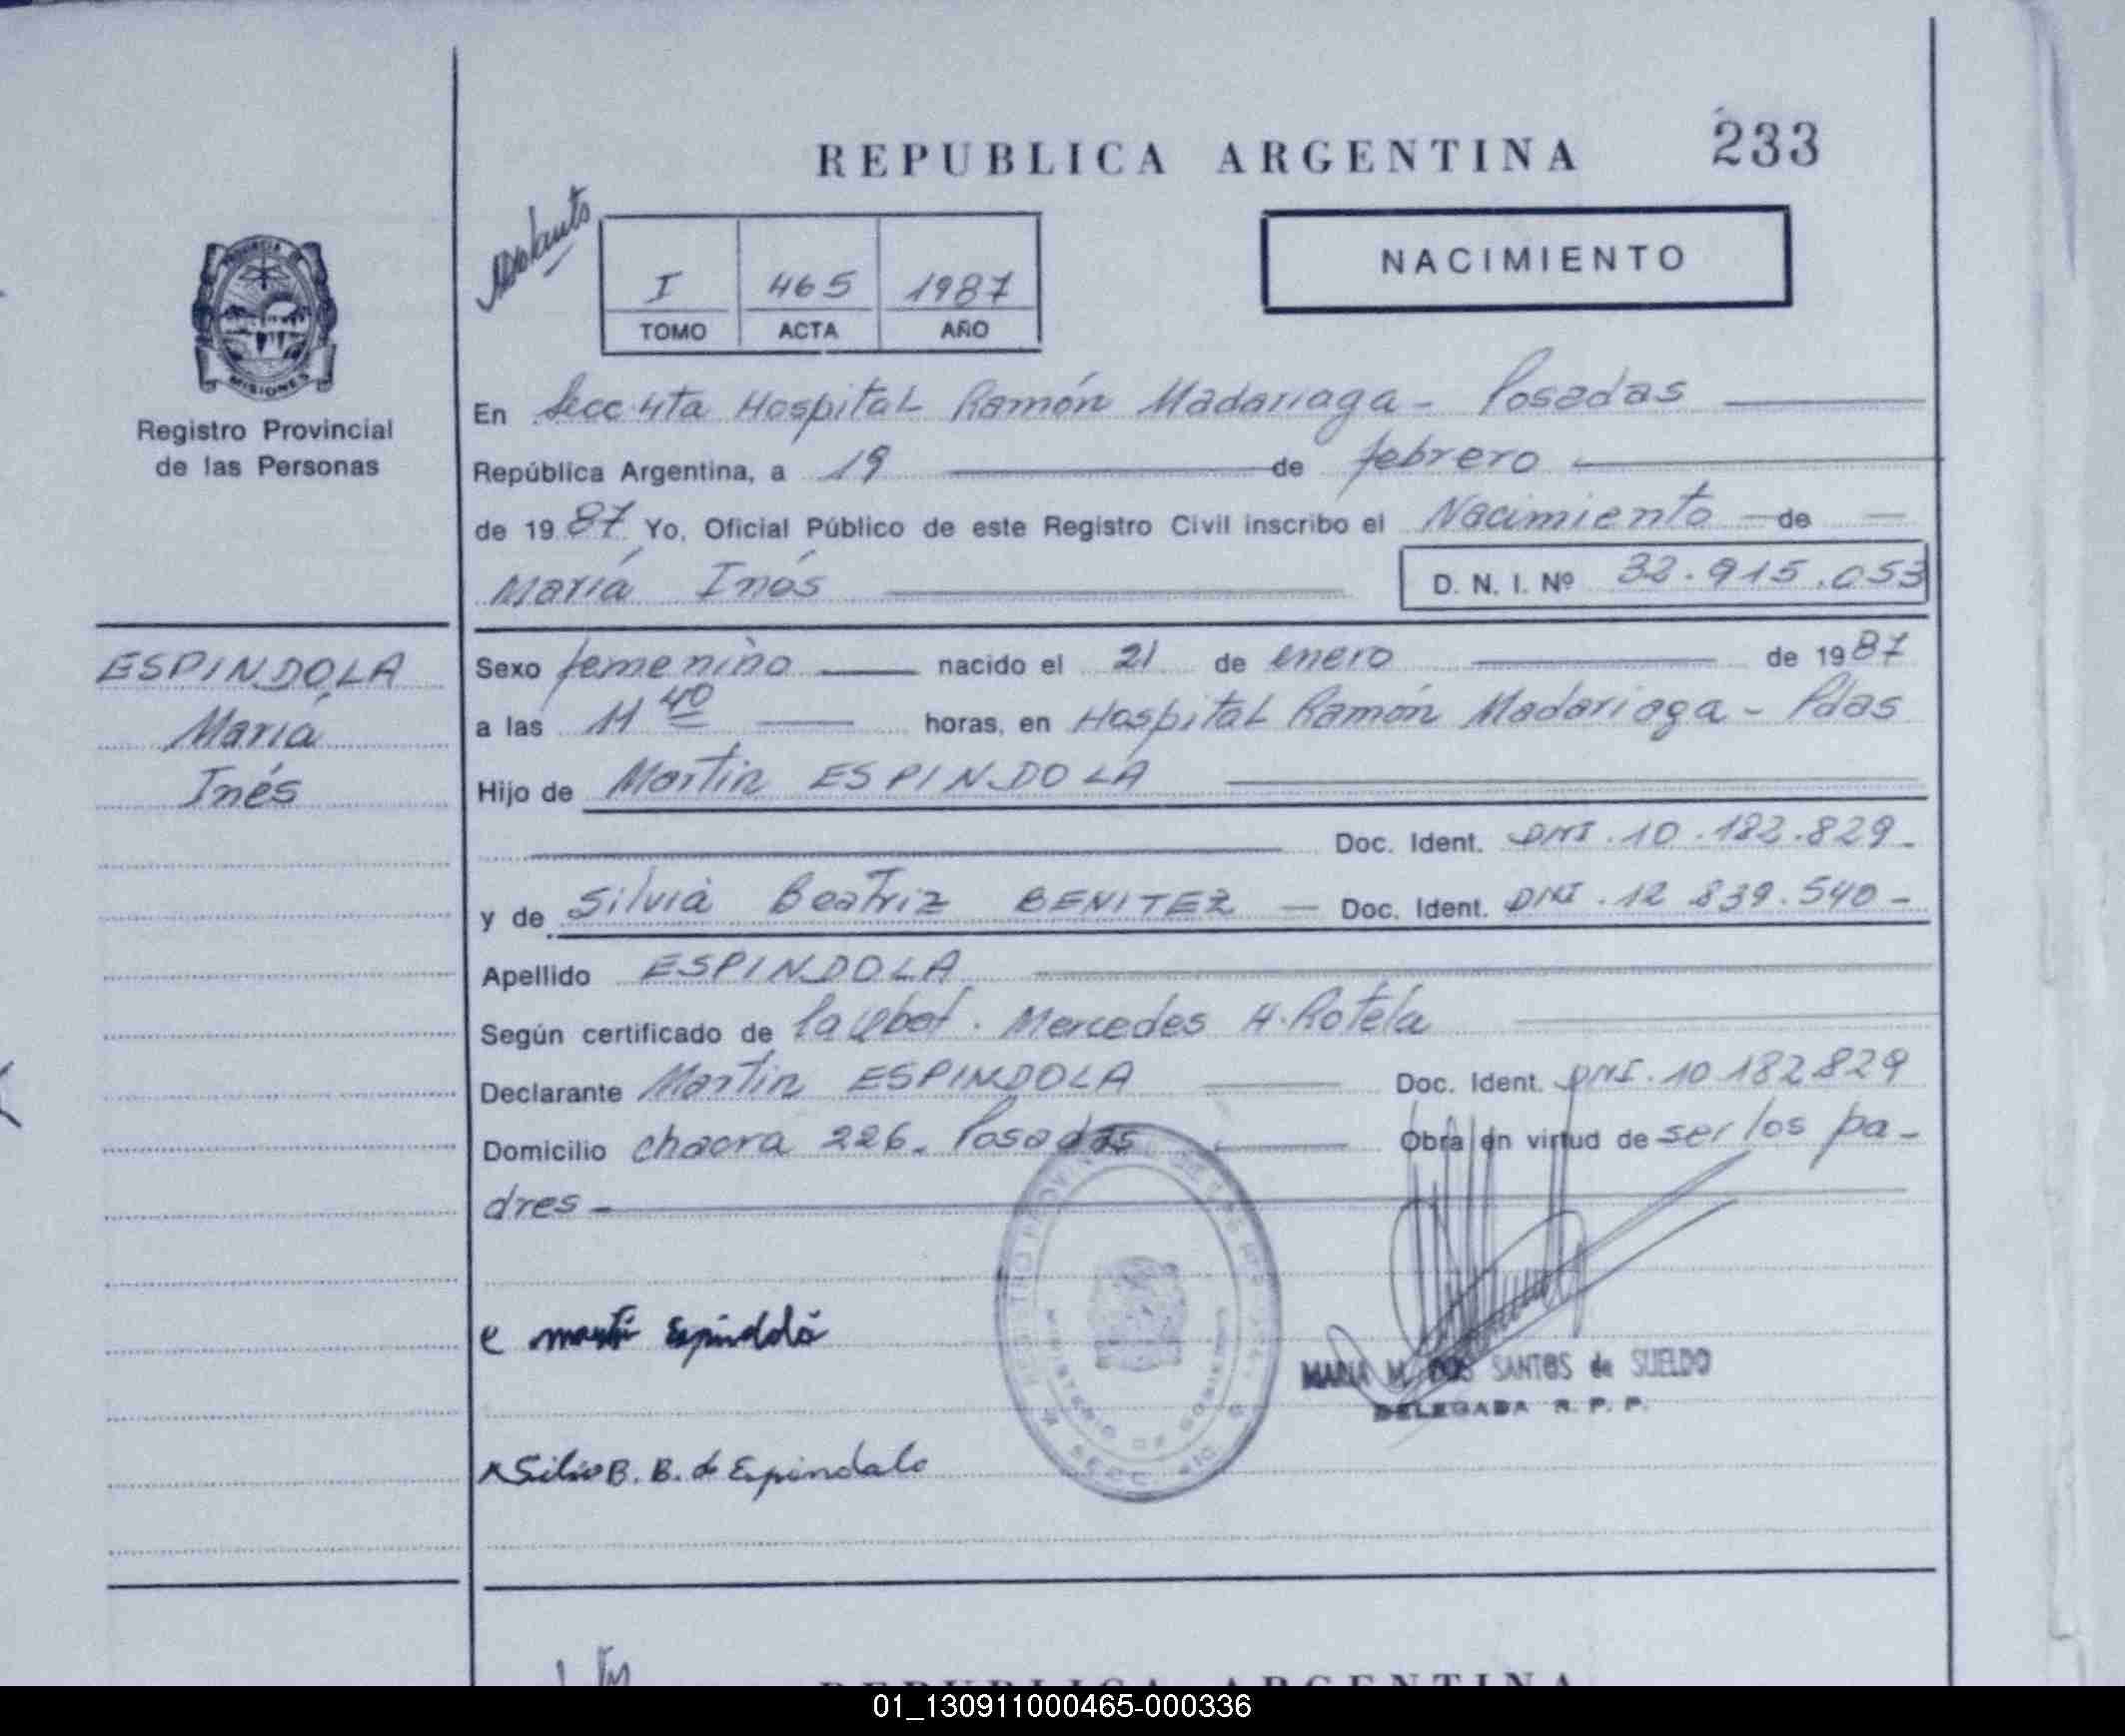 REPUBLICA ARGENTINA 233
NACIMIENTO
I 465 1987
TOMO ACTA AÑO
PROVINCIA DE
MISIONES
Registro Provincial
de las Personas
En Secc 4ta Hospital Ramón Madariaga - Posadas
República Argentina, a 19 de febrero
de 1987 Yo, Oficial Público de este Registro Civil inscribo el Nacimiento de
María Inés D. N. I. Nº 32.915.053
ESPINDOLA
María
Inés
Sexo femenino nacido el 21 de enero de 1987
a las 11 40 horas, en Hospital Ramón Madariaga - Pdas
Hijo de Martin ESPINDOLA
Doc. Ident. DNI. 10.182.829-
y de Silvia Beatriz BENITEZ - Doc. Ident. DNI. 12 839.540-
Apellido ESPINDOLA
Según certificado de Mercedes H. Rotela
Declarante Martin ESPINDOLA Doc. Ident. DNI. 10 182829
Domicilio chacra 226. Posadas Obra en virtud de ser los pa-
dres -
REGISTRO PROVINCIAL DE LAS PERSONAS
MINISTERIO DE GOBIERNO
Espindola
MARIA M. DOS SANTOS de SUELDO
DELEGADA R. P. P.
Silvia B. B. de Espindola
REPUBLICA ARGENTINA
01_130911000465-000336